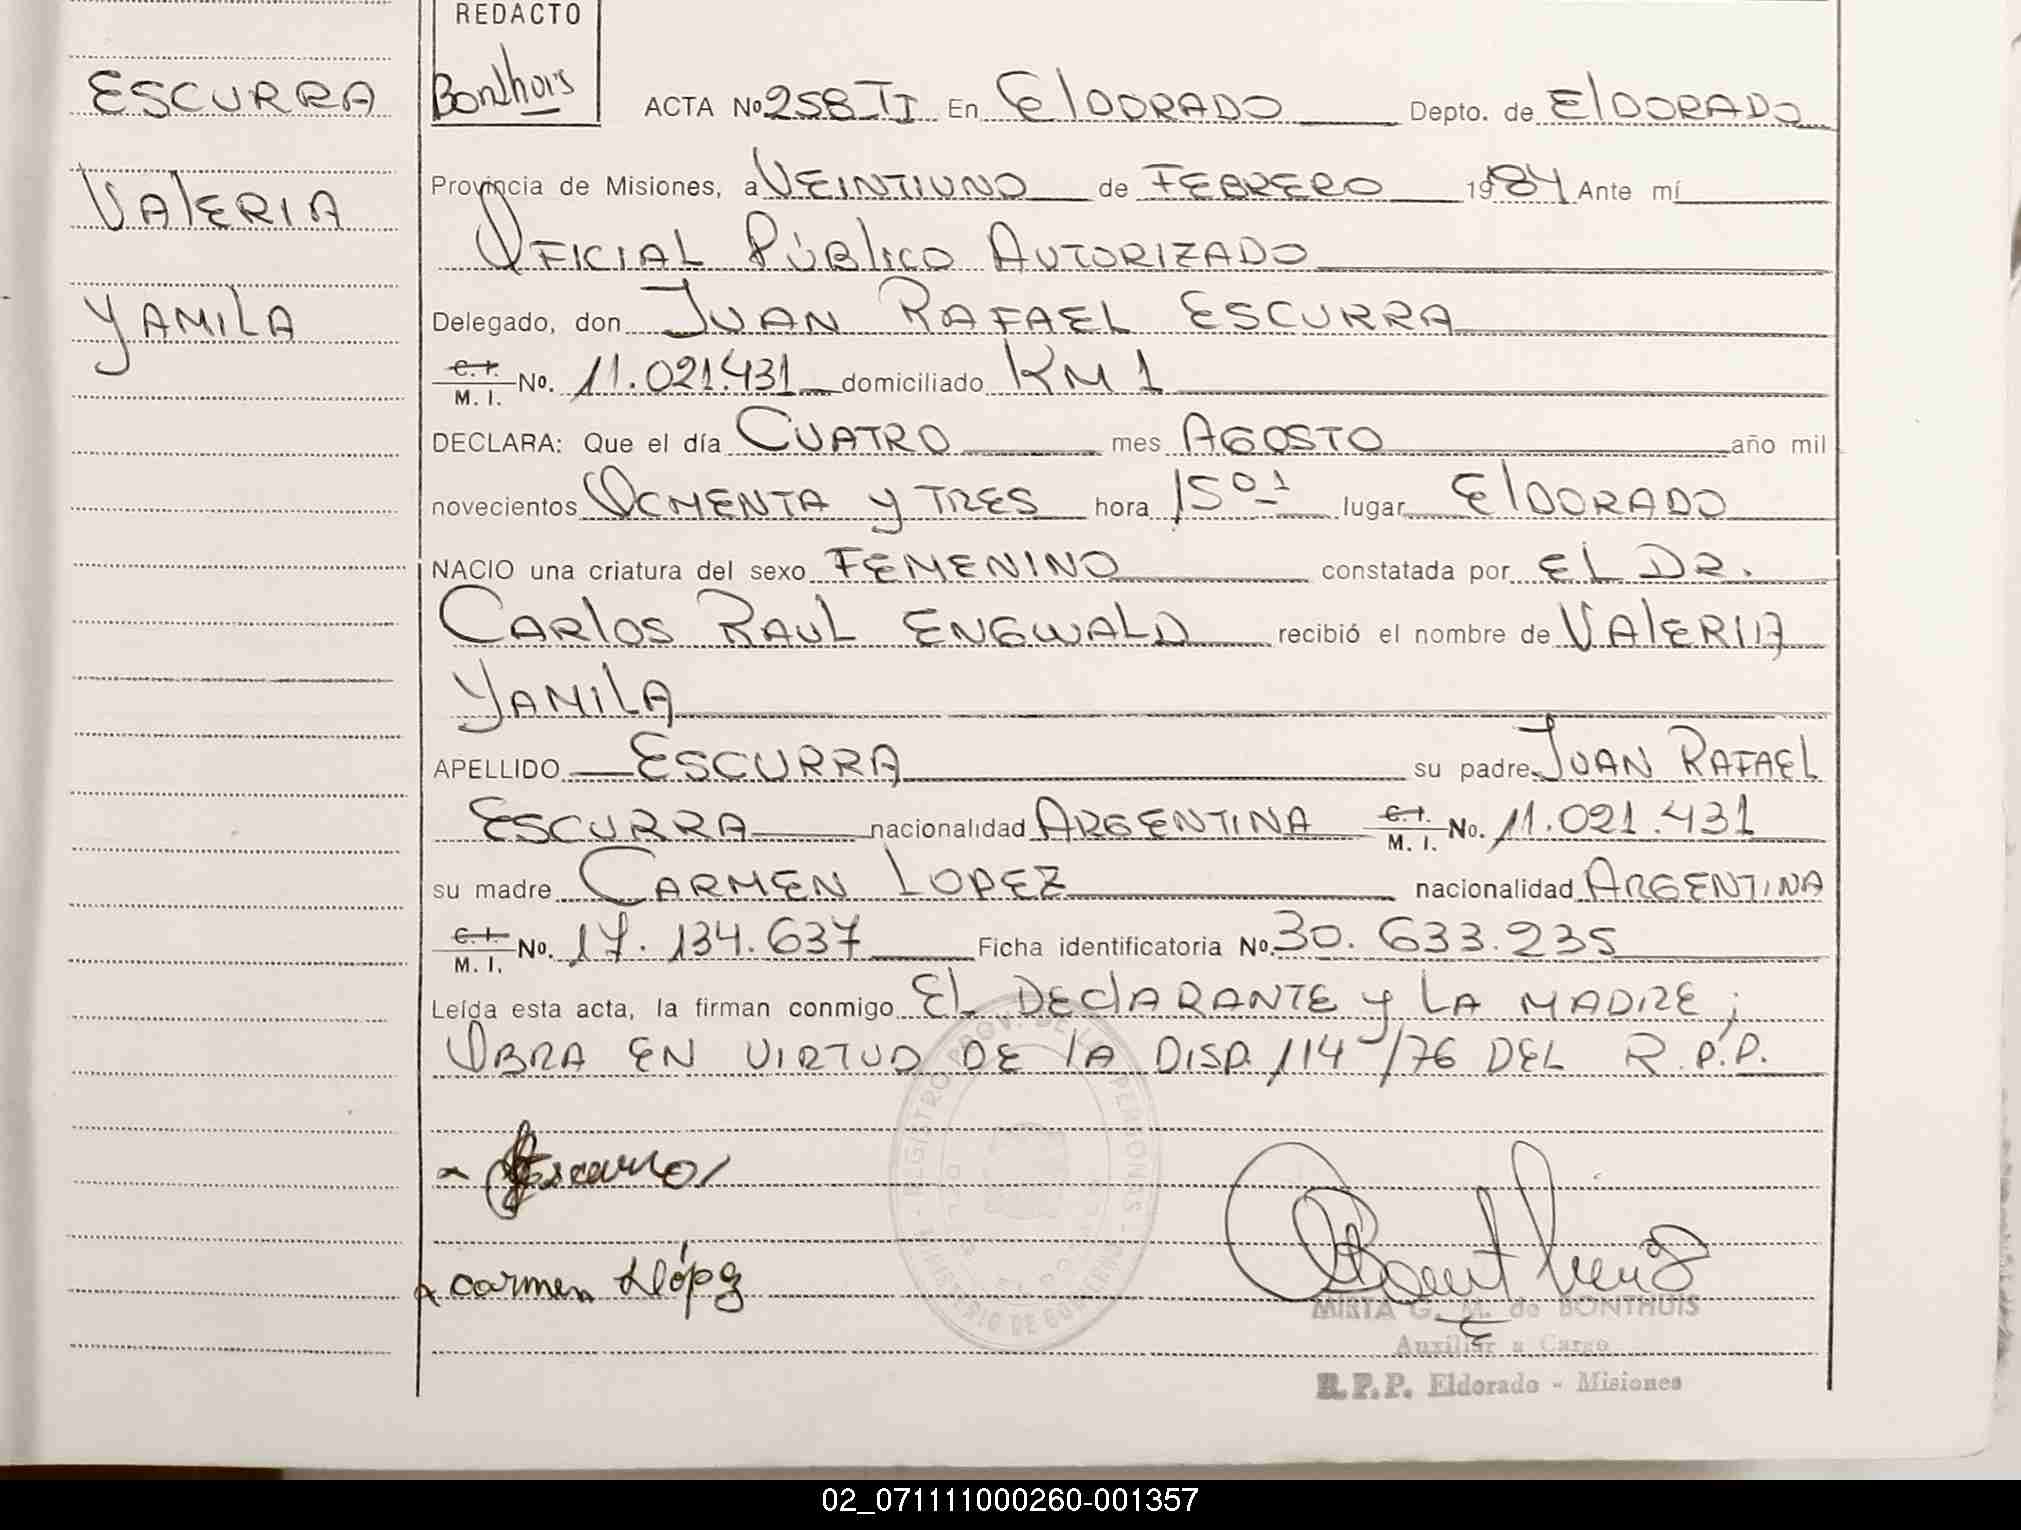 REDACTO
Bonthuis
ESCURRA
VALERIA
YAMILA
ACTA No 258 TI En ElDORADO Depto. de ElDORADO
Provincia de Misiones, a VEINTIUNO de FEBRERO 1984 Ante mí
OFICIAL PÚBlICO AUTORIZADO
Delegado, don JUAN RAFAEL ESCURRA
C. I. M. I. No. 11.021.431 domiciliado KM 1
DECLARA: Que el día CUATRO mes AGOSTO año mil
novecientos OCHENTA y TRES hora 15 01 lugar ElDORADO
NACIO una criatura del sexo FEMENINO constatada por EL DR.
CARlOS RAUL ENGWALD recibió el nombre de VAlERIA
YAMILA
APELLIDO ESCURRA su padre JUAN RAFAEL
ESCURRA nacionalidad ARGENTINA C. I. M. I. No. 11.021.431
su madre CARMEN LOPEZ nacionalidad ARGENTINA
C. I. M. I. No. 17.134.637 Ficha identificatoria No. 30.633.235
Leída esta acta, la firman conmigo EL DEClARANTE y LA MADRE;
OBRA EN VIRTUD DE lA DISP. 114/76 DEL R.P.P.
Carmen López
REGISTRO PROV. DE LAS PERSONAS
MINISTERIO DE GOBIERNO
MIRTA G. M. de BONTHUIS
Auxiliar a Cargo
R.P.P. Eldorado - Misiones
02_071111000260-001357